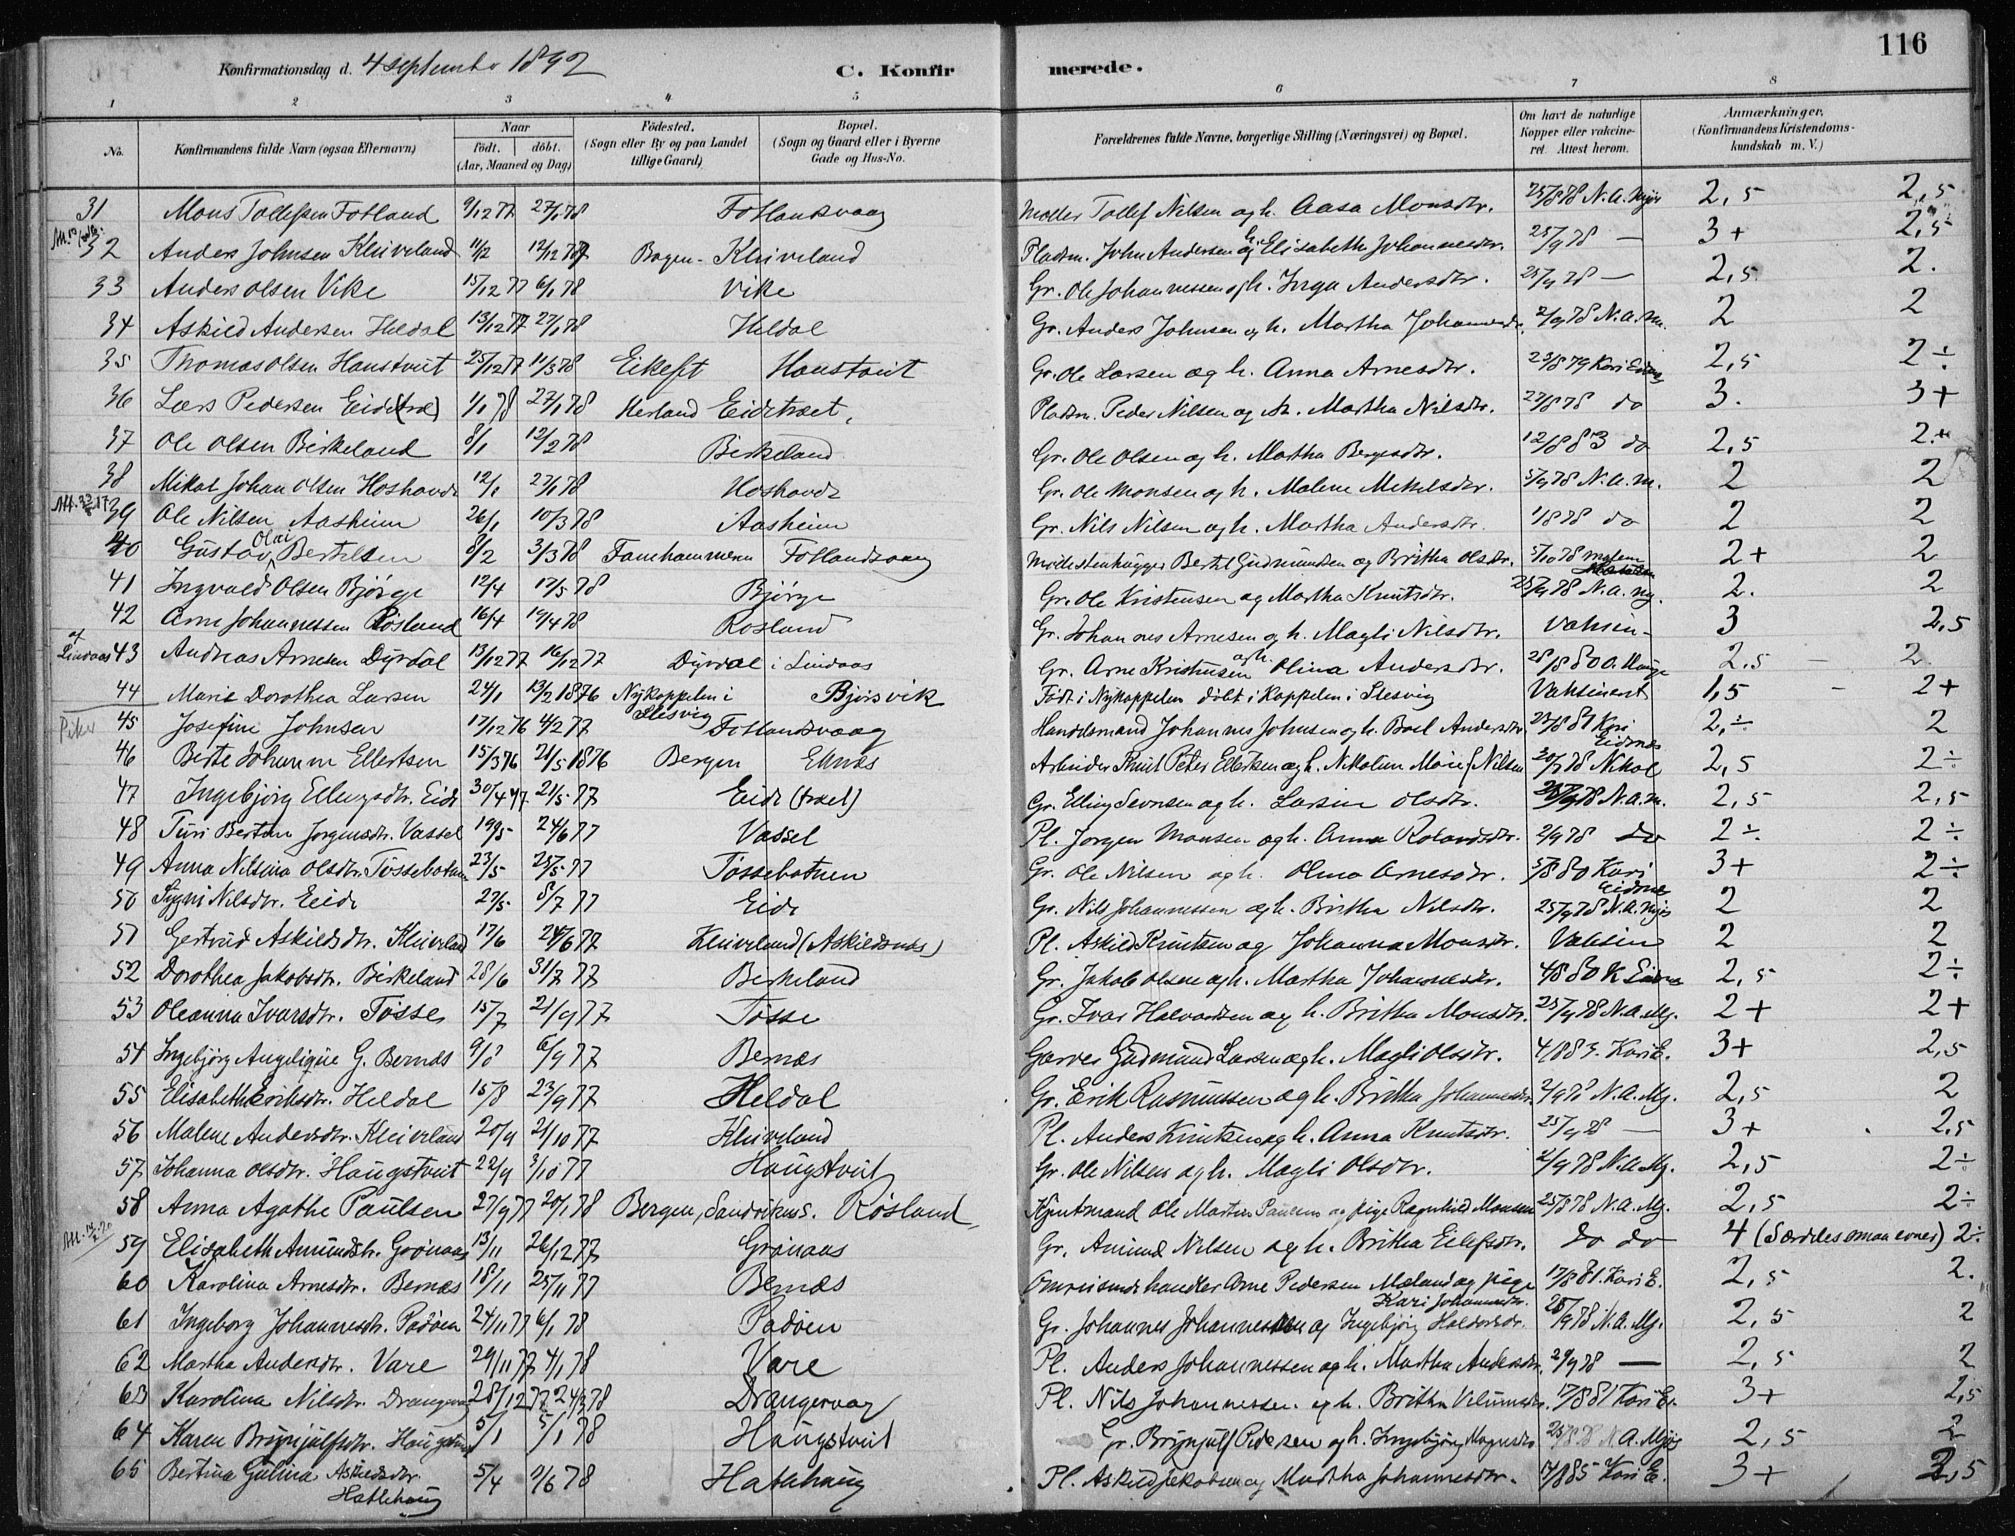 116
Konfirmationsdag d. 4 septembr 1892 C. Konfirmerede.
1 2 3 4 5 6 7 8
No. Konfirmandens fulde Navn (ogsaa Efternavn) Naar födt. döbt. (Aar, Maaned og Dag) Födested. (Sogn eller By og paa Landet tillige Gaard) Bopæl. (Sogn og Gaard eller i Byerne Gade og Hus-No. Forældrenes fulde Navne, borgerlige Stilling (Næringsvei) og Bopæl. Om havt de naturlige Kopper eller vakcineret. Attest herom. Anmærkninger, (Konfirmandens Kristendomskundskab m. V.)
31 Mons Tollefsen Fotland 9/12 77 27/1 78 Fotlandsvaag Møller Tollef Nilsen og h. Aasa Monsdtr. 25/8 78 N. A. Mjøs 2,5 2,5
32 Anders Johnsen Kleiveland 11/2 12/12 Bergen - Kleiveland Pladsm. John Andersen og h. Elisabeth Johannesdtr. 25/9 78 — 3+ 2,5
33 Anders Olsen Vike 15/12 77 6/1 78 Vike Gr. Ole Johannessen og h. Inga Andersdtr. 25/9 78 — 2,5 2.
34 Askild Andersen Heldal 13/12 77 27/1 78 Heldal Gr. Anders Johnsen og h. Martha Johannesdtr. 2/9 78 N. A. M. 2 2
35 Thomas Olsen Haustveit 25/12 77 11/3 78 Eikefet Haustveit Gr. Ole Larsen og h. Anna Arnesdtr. 23/8 79 Kari Eidsnes 2,5 2÷
36 Lars Pedersen Eide (træ) 1/1 78 27/1 78 Herland Eidetræet, Pladsm. Peder Nilsen og h. Martha Nilsdtr. 27/8 78 do 3. 3+
37 Ole Olsen Birkeland 8/1 12/2 78 Birkeland Gr. Ole Olsen og h. Martha Bergesdtr. 12/8 83 do 2,5 2+
38 Mikal Johan Olsen Hoshovde 12/1 27/1 78 Hoshovde Gr. Ole Monsen og h. Malene Mikkelsdtr. 5/9 78 N. A. M. 2 2
39 Ole Nilsen Aasheim 26/1 10/3 78 Aasheim Gr. Nils Nilsen og h. Martha Andersdtr. 1/8 78 do 2 2
40 Gustav Olai Bertelsen 8/2 3/3 78 Famehammeren Fotlandsvaag Møllestenhugger Bertel Gudmundsen og Britha Olsdtr. 5/10 78 2+ 2
41 Ingvald Olsen Bjørge 12/4 17/5 78 Bjørge Gr. Ole Kristensen og Martha Knutsdtr. 25/9 78 N. A. Mj. 2. 2
42 Arne Johannessen Røsland 16/4 19/4 78 Rosland Gr. Johannes Arnesen og h. Magli Nilsdtr. Vaksin- 3 2,5
af Lindaas 43 Andreas Arnesen Dyrdal 13/12 77 16/12 77 Dyrdal i Lindaas Gr. Arne Kristensen og h. Olina Andersdtr. 28/8 80 O. Hauge 2,5 — 2
44 Marie Dorothea Larsen 24/1 13/2 1876 Nykoppelen i Slesvig Bjørsvik Født i Nykoppelen döbt i Koppelen i Slesvig Vaksineret 1,5 - 2+
Piker 45 Josefine Johnsen 17/12 76 4/2 77 Fotlandsvaag Handelsmand Johannes Johnsen og h. Boel Andersdtr. 27/8 81 Kari Eidsnes 2,÷ 2
46 Berte Johanne Ellertsen 15/3 76 21/5 1876 Bergen Eknæs Arbeider Knut Peter Ellertsen og h. Nikoline Marie f. Nilsen 20/7 78 Nikol 2,5 2÷
47 Ingebjörg Ellingsdtr. Eide 30/4 77 21/5 77 Eide (træet) Gr. Elling Ivarsen og h. Larsine Olsdtr. 25/9 78 N. A. M. 2,5 2,5
48 Turi Bertine Jorgensdtr. Vassel 19/5 24/6 77 Vassel Pl. Jorgen Monsen og h. Anna Rolandsdtr. 2/9 78 do 2÷ 2÷
49 Anna Nilsina Olsdtr. Tössebotnen 23/5 25/5 77 Tössebotnen Gr. Ole Nilsen og h. Olina Arnesdtr. 5/8 80 Kari Eidsnes 3+ 2÷
50 Signi Nilsdtr. Eide 27/5 8/7 77 Eide Gr. Nils Johannessen og h. Britha Nilsdtr. 25/9 78 N. A. Mjøs 2 2
51 Gertrud Askildsdtr. Kleiveland 17/6 24/6 77 Kleiveland (Askildsnes) Pl. Askild Knutsen og Johanna Monsdtr. Vaksin 2 2
52 Dorothea Jakobsdtr. Birkeland 28/6 31/7 77 Birkeland Gr. Jakob Olsen og h. Martha Johannesdtr. 4/8 80 K Eidsnes 2,5 2÷
53 Oleanna Ivarsdtr. Tösse 15/7 21/9 77 Tösse Gr. Ivar Halvorsen og h. Britha Monsdtr. 25/9 78 N. A. Mj. 2+ 2+
54 Ingebjörg Angelique G. Bernæs 9/8 6/9 77 Bernæs Garver Gudmund Larsen og h. Magli Olsdtr. 4/8 83. Kari E. 3+ 2,5
55 Elisabeth Eriksdtr. Heldal 15/8 23/9 77 Heldal Gr. Erik Rasmussen og h. Britha Johannesdtr. 2/9 78 N. A. Mj. 2,5 2
56 Malene Andersdtr. Kleiveland 20/9 21/10 77 Kleiveland Pl. Anders Knutsen og h. Anna Knutsdtr. 25/9 78 — 3+ 2,5
57 Johanna Olsdtr. Haugstveit 22/9 3/10 77 Haugstveit Gr. Ole Nilsen og h. Magli Olsdtr. 2/9 78 N. A. Mj. 2,5 2÷
58 Anna Agathe Paulsen 27/9 77 20/1 78 Bergen, Sandvikens. Røsland, Kjøbmand Ole Martin Paulsen og pige Ragnhild Monsen 25/8 78 N. A. Mj. 2,5 2÷
59 Elisabeth Amundsdtr. Grönaas 13/11 26/12 77 Grönaas Gr. Amund Nilsen og h. Britha Eilefsdtr. do do 4 (Særdeles smaa evner) 2÷
60 Karolina Arnesdtr. Bernæs 18/11 25/11 77 Bernæs Omreisende handler Arne Pedersen Mæland og pige Kari Johannesdtr. 17/8 81. Kari E. 2,5 2.
61 Ingeborg Johannesdtr. Padöen 24/11 77 6/1 78 Padöen Gr. Johannes Johannessen og Ingebjörg Haldorsdtr. 25/9 78 N. A. Mj. 2,5 2
62 Martha Andersdtr. Vare 29/11 77 4/1 78 Vare Pl. Anders Johannessen og h. Martha Andersdtr. 2/9 78 — 2,5 2
63 Karolina Nilsdtr. Drangevaag 28/12 77 24/3 78 Drangevaag Pl. Nils Johannessen og h. Britha Villumsdtr. 17/8 81 Kari E. 3+ 2,5
64 Karen Brynjulfsdtr. Haugstveit 5/1 5/1 78 Haugstveit Gr. Brynjulf Pedersen og h. Ingebjörg Magnesdtr. 25/8 78 N. A. Mjøs 2,5 2
65 Bertina Gulina Askildsdtr. Hatlehaug 5/4 9/6 78 Hatlehaug Pl. Askild Jakobsen og Martha Johannesdtr. 17/8 85 Kari E. 3+ 2,5